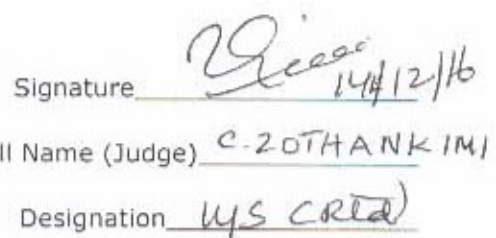 Signature 14/12/16
ll Name (Judge) C. ZOTHANKIMI
Designation